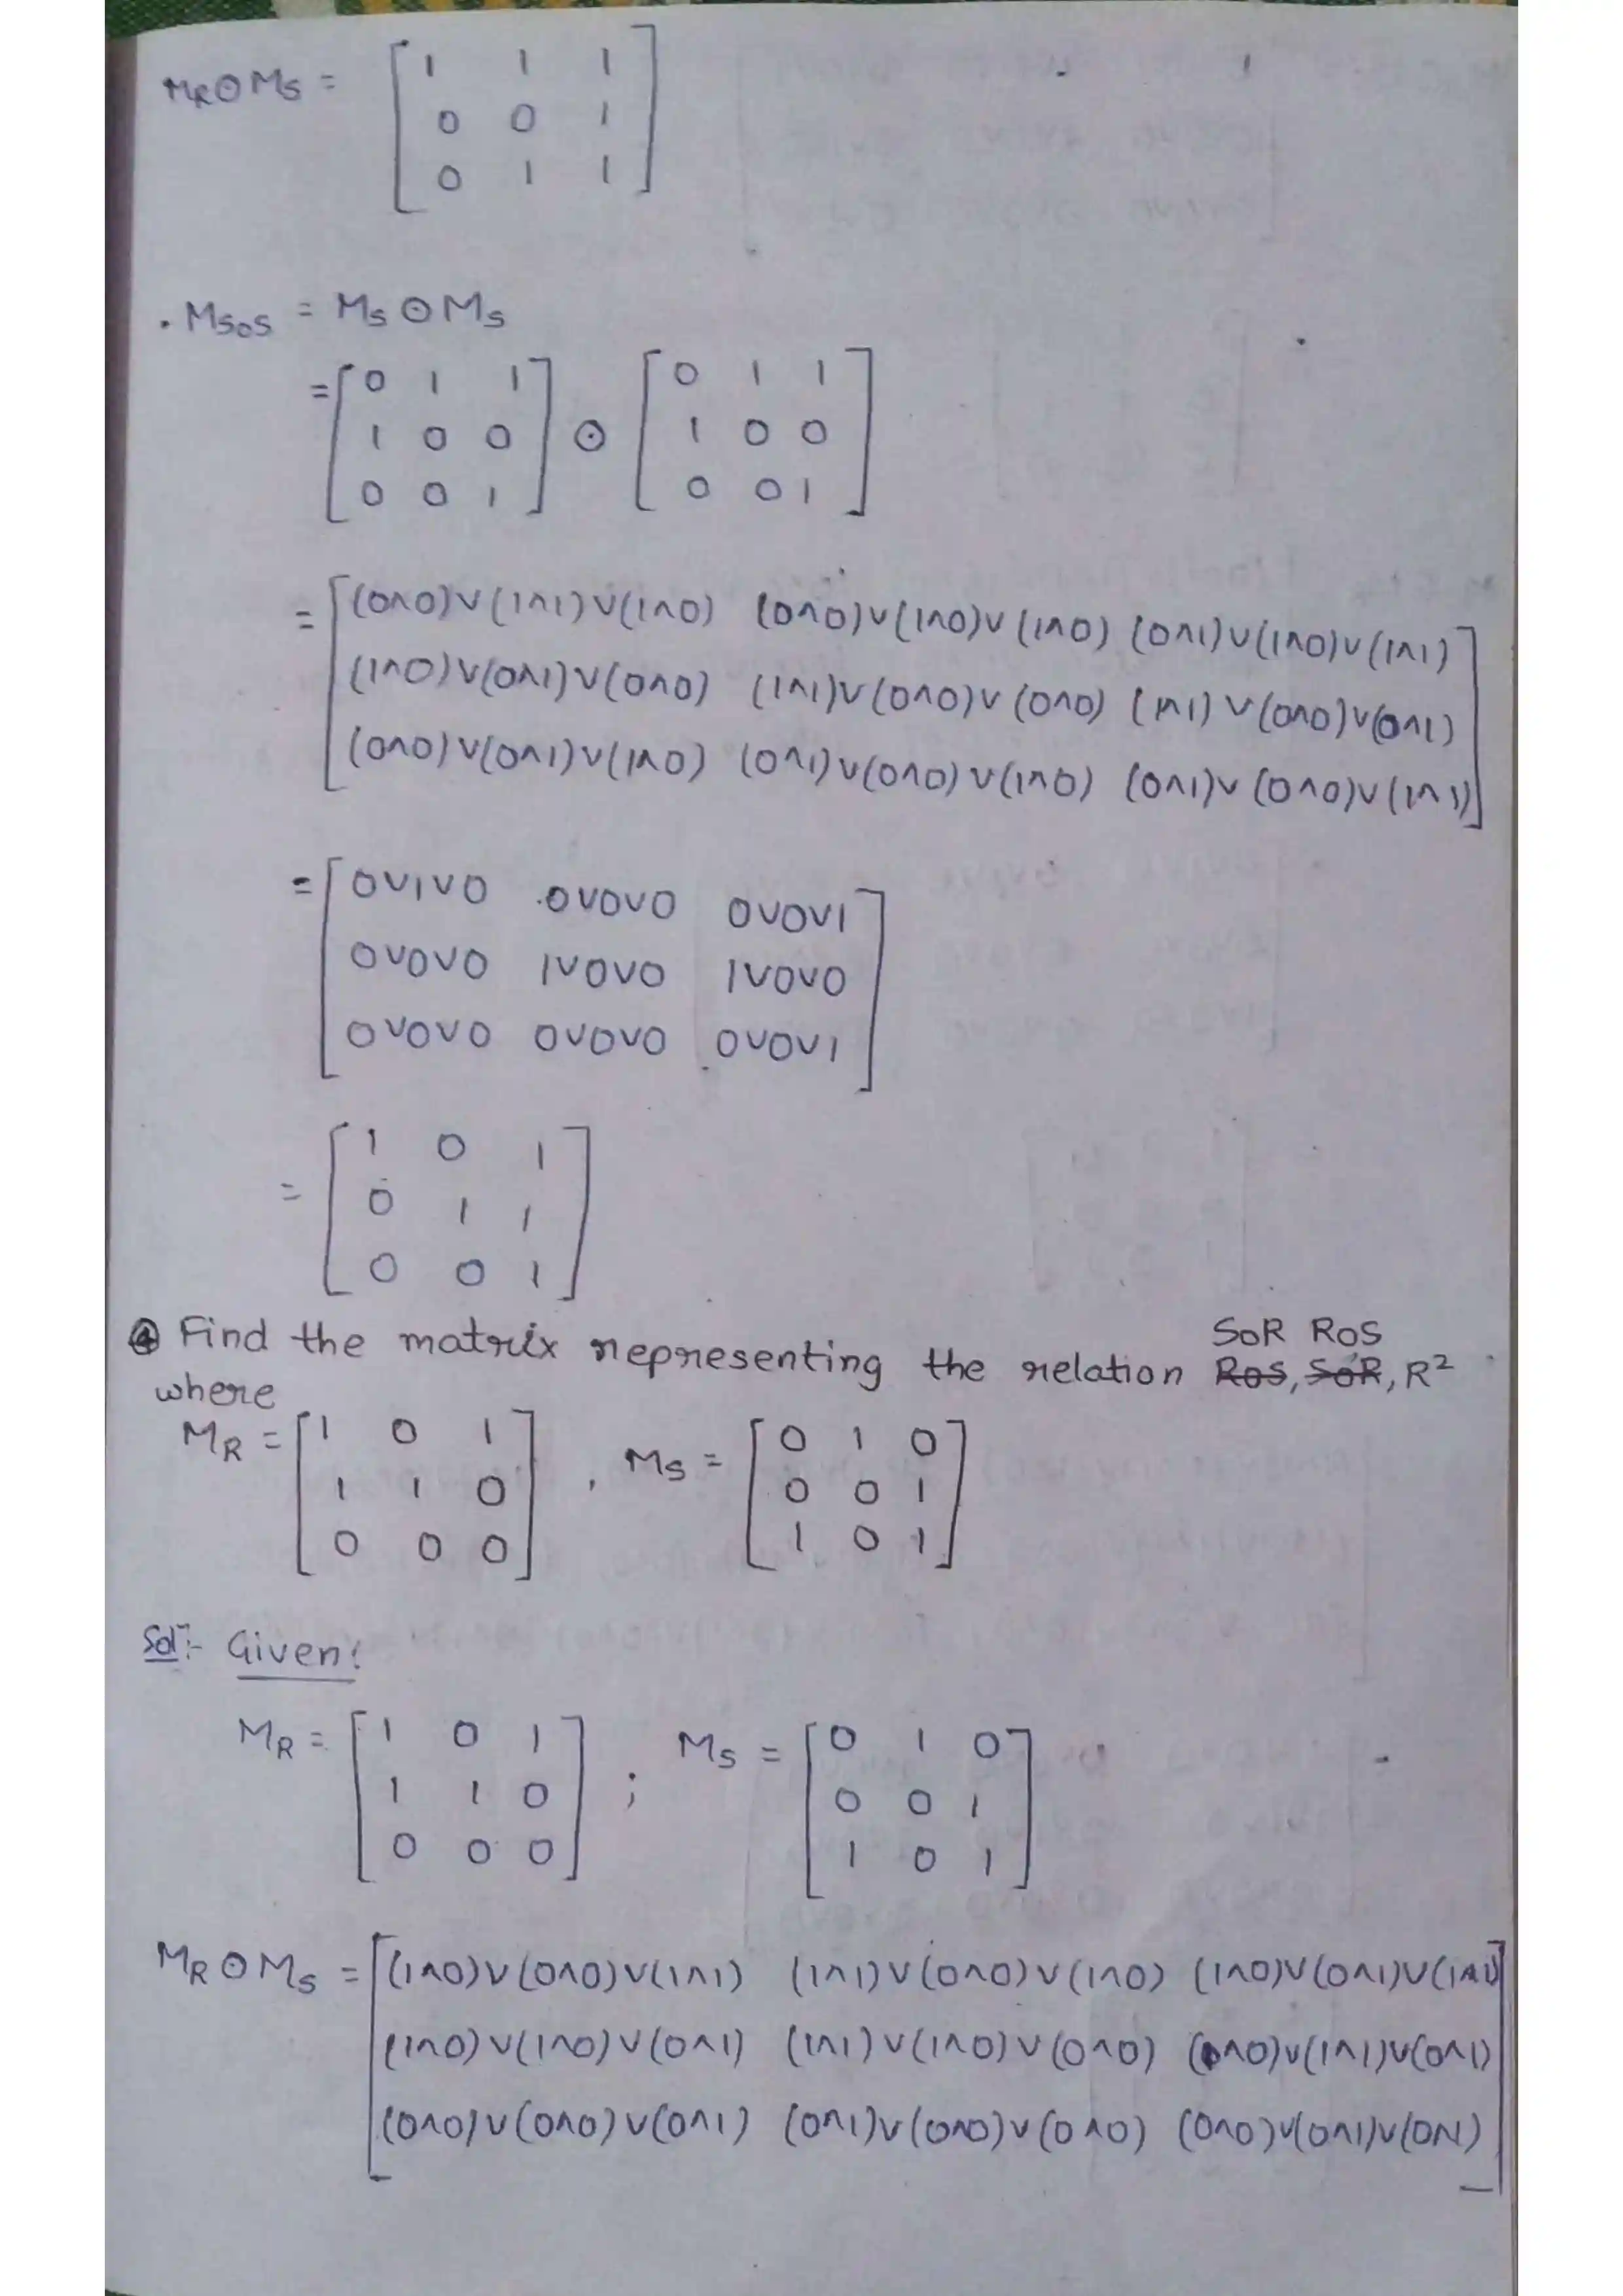 MR⊙MS = [1 1 1
0 0 1
0 1 1]
. MSoS = MS⊙MS
= [0 1 1
1 0 0
0 0 1] ⊙ [0 1 1
1 0 0
0 0 1]
= [(0∧0)∨(1∧1)∨(1∧0) (0∧0)∨(1∧0)∨(1∧0) (0∧1)∨(1∧0)∨(1∧1)
(1∧0)∨(0∧1)∨(0∧0) (1∧1)∨(0∧0)∨(0∧0) (1∧1)∨(0∧0)∨(0∧1)
(0∧0)∨(0∧1)∨(1∧0) (0∧1)∨(0∧0)∨(1∧0) (0∧1)∨(0∧0)∨(1∧1)]
= [0∨1∨0 0∨0∨0 0∨0∨1
0∨0∨0 1∨0∨0 1∨0∨0
0∨0∨0 0∨0∨0 0∨0∨1]
= [1 0 1
0 1 1
0 0 1]
SoR RoS
④ Find the matrix representing the relation RoS, SoR, R²
where
MR = [1 0 1
1 1 0
0 0 0] , MS = [0 1 0
0 0 1
1 0 1]
Sol:- Given:
MR = [1 0 1
1 1 0
0 0 0] ; MS = [0 1 0
0 0 1
1 0 1]
MR⊙MS = [(1∧0)∨(0∧0)∨(1∧1) (1∧1)∨(0∧0)∨(1∧0) (1∧0)∨(0∧1)∨(1∧1)
(1∧0)∨(1∧0)∨(0∧1) (1∧1)∨(1∧0)∨(0∧0) (1∧0)∨(1∧1)∨(0∧1)
(0∧0)∨(0∧0)∨(0∧1) (0∧1)∨(0∧0)∨(0∧0) (0∧0)∨(0∧1)∨(0∧1)]